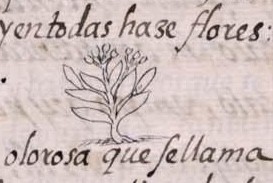 yentodas haze flores:
olorosa que sellama